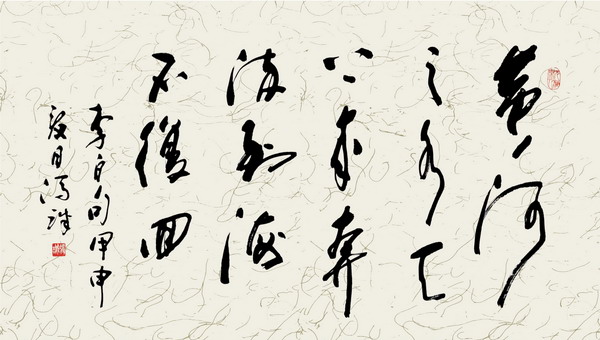 黄河
之水天
上来奔
流到海
不復回
李白句甲申
夏月冯